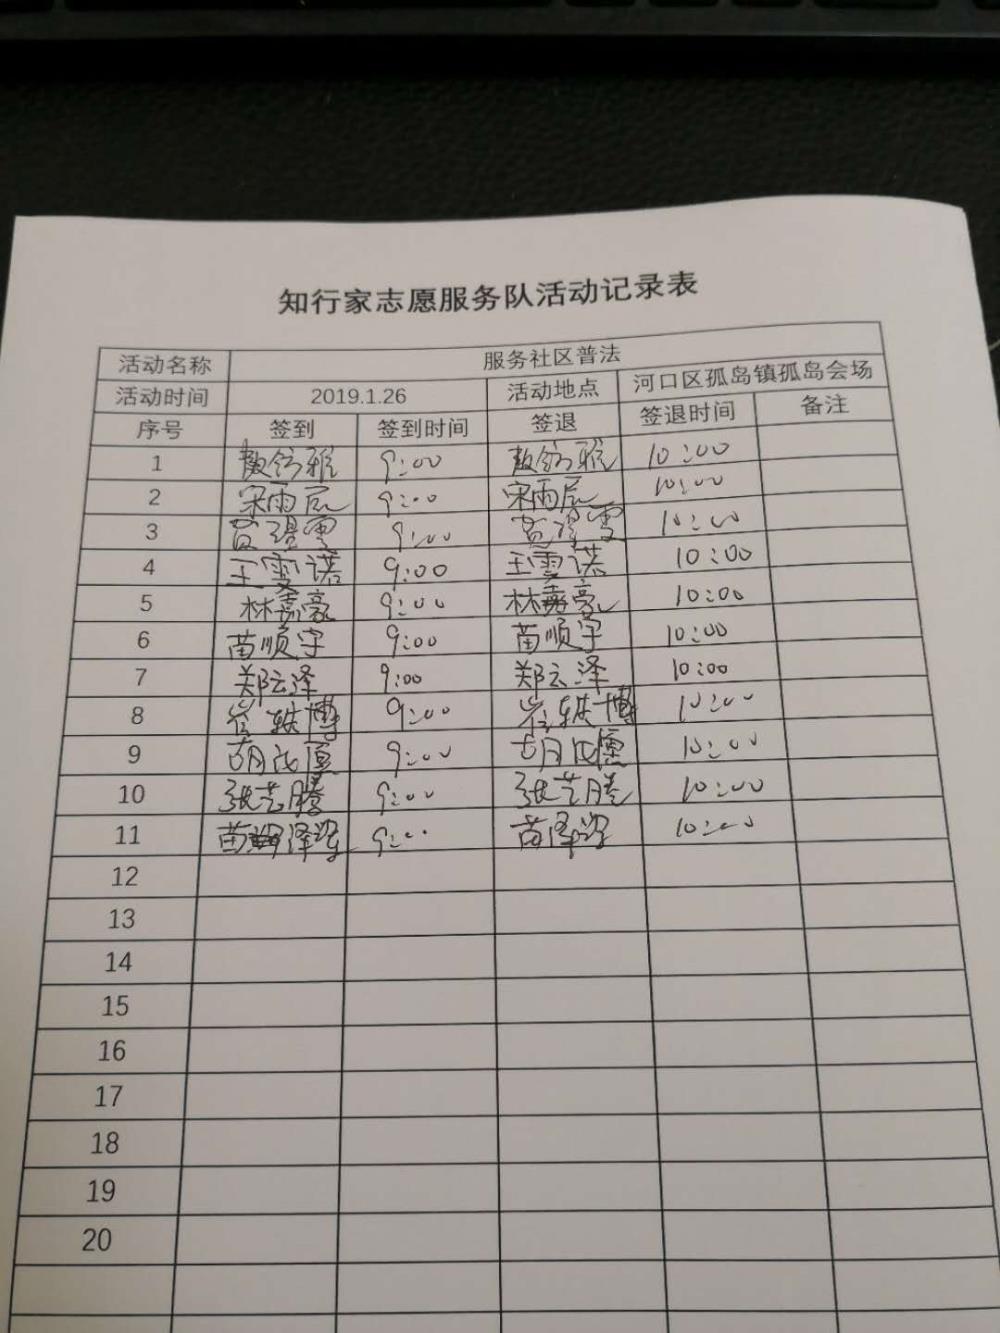 知行家志愿服务队活动记录表
活动名称 服务社区普法
活动时间 2019.1.26 活动地点 河口区孤岛镇孤岛会场
序号 签到 签到时间 签退 签退时间 备注
1 9:00 10:00
2 宋雨辰 9:00 宋雨辰 10:00
3 9:00 10:00
4 王雪诺 9:00 王雪诺 10:00
5 林嘉豪 9:00 林嘉豪 10:00
6 苗顺宇 9:00 苗顺宇 10:00
7 郑云泽 9:00 郑云泽 10:00
8 崔轶博 9:00 崔轶博 10:00
9 9:00 10:00
10 张艺腾 9:00 张艺腾 10:00
11 9:00 10:00
12
13
14
15
16
17
18
19
20